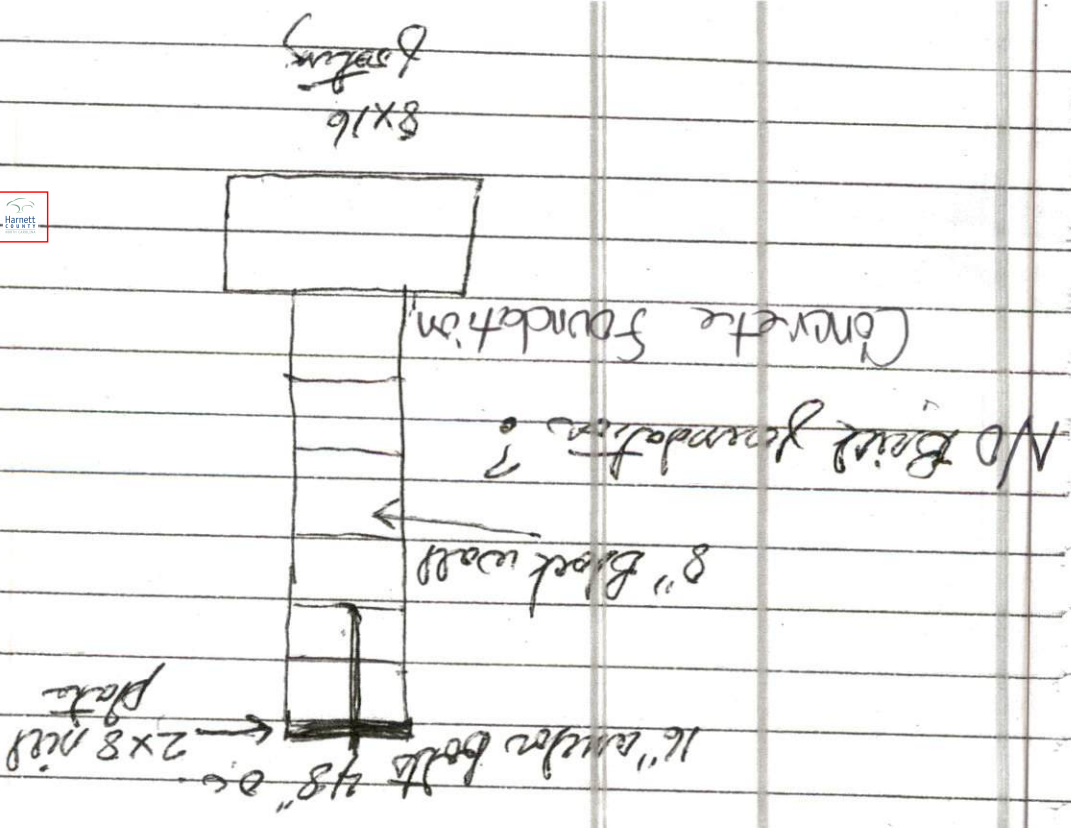 16" anchor bolts 48" oc.
2x8 sill
plate
8" Block wall
No Brick foundation ?
Concrete Foundation
8x16
footing
Harnett
COUNTY